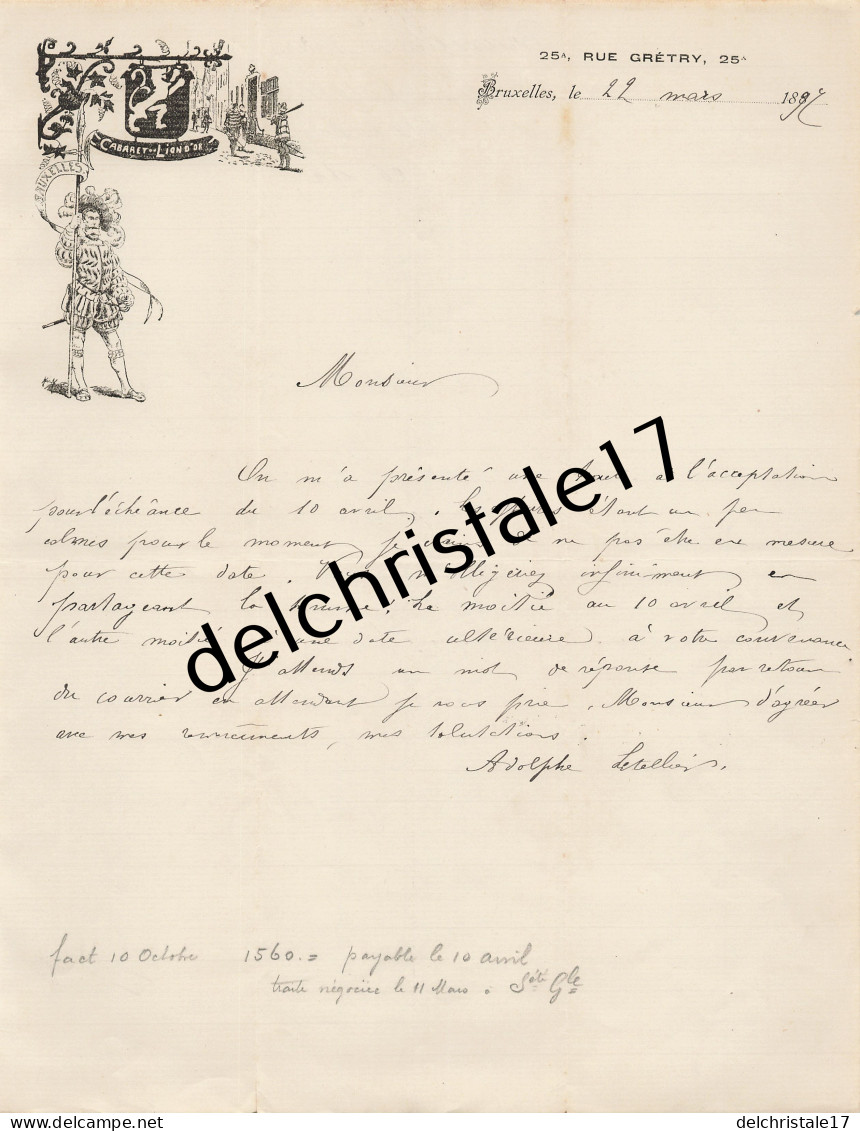 25A, RUE GRÉTRY, 25A
Bruxelles, le 22 mars 1897
CABARET DU LION D'OR
BRUXELLES
Monsieur
On m'a présenté une à l'acceptation
pour l'échéance du 10 avril, les étant un peu
calmes pour le moment, je crains de ne pas être en mesure
pour cette date. infiniment en
partageant la La moitié au 10 avril et
l'autre moitié à une date ultérieure à votre convenance
J'attends un mot de réponse par retour
du courrier en attendant je vous prie, Monsieur d'agréer
avec mes remerciements, mes salutations.
Adolphe Letellier.
fact 10 Octobre 1560.= payable le 10 avril
traite négociée le 11 Mars à Sté Gle
delchristale17
delcampe.net
delchristale17